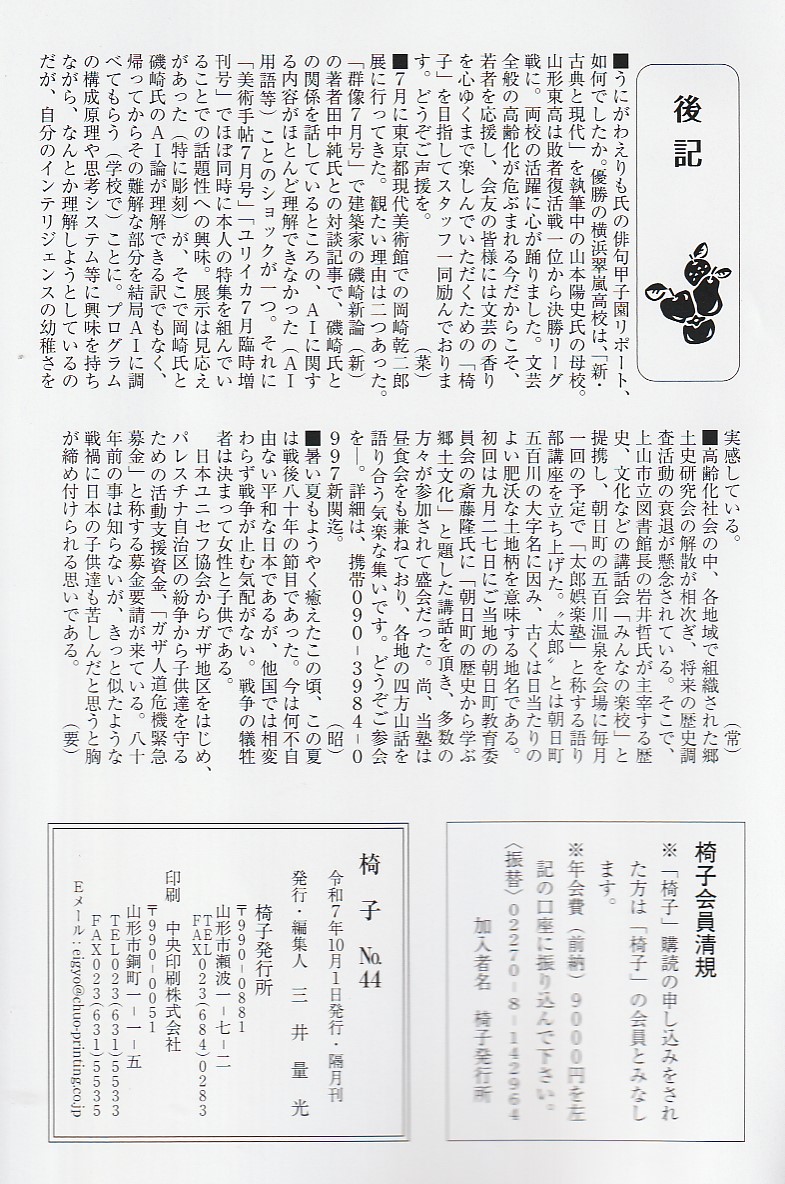 後記
■うにがわえりも氏の俳句甲子園リポート、
如何でしたか。優勝の横浜翠嵐高校は、「新・
古典と現代」を執筆中の山本陽史氏の母校。
山形東高は敗者復活戦一位から決勝リーグ
戦に。両校の活躍に心が踊りました。文芸
全般の高齢化が危ぶまれる今だからこそ、
若者を応援し、会友の皆様には文芸の香り
を心ゆくまで楽しんでいただくための「椅
子」を目指してスタッフ一同励んでおりま
す。どうぞご声援を。（菜）
■７月に東京都現代美術館での岡﨑乾二郎
展に行ってきた。観たい理由は二つあった。
「群像７月号」で建築家の磯崎新論（新）
の著者田中純氏との対談記事で、磯崎氏と
の関係を話しているところの、ＡＩに関す
る内容がほとんど理解できなかった（ＡＩ
用語等）ことのショックが一つ。それに
「美術手帖７月号」「ユリイカ７月臨時増
刊号」でほぼ同時に本人の特集を組んでい
ることでの話題性への興味。展示は見応え
があった（特に彫刻）が、そこで岡崎氏と
磯崎氏のＡＩ論が理解できる訳でもなく、
帰ってからその難解な部分を結局ＡＩに調
べてもらう（学校で）ことに。プログラム
の構成原理や思考システム等に興味を持ち
ながら、なんとか理解しようとしているの
だが、自分のインテリジェンスの幼稚さを
実感している。（常）
■高齢化社会の中、各地域で組織された郷
土史研究会の解散が相次ぎ、将来の歴史調
査活動の衰退が懸念されている。そこで、
上山市立図書館長の岩井哲氏が主宰する歴
史、文化などの講話会「みんなの楽校」と
提携し、朝日町の五百川温泉を会場に毎月
一回の予定で「太郎娯楽塾」と称する語り
部講座を立ち上げた。〝太郎〟とは朝日町
五百川の大字名に因み、古くは日当たりの
よい肥沃な土地柄を意味する地名である。
初回は九月二七日にご当地の朝日町教育委
員会の斎藤隆氏に「朝日町の歴史から学ぶ
郷土文化」と題した講話を頂き、多数の
方々が参加されて盛会だった。尚、当塾は
昼食会をも兼ねており、各地の四方山話を
語り合う気楽な集いです。どうぞご参会
を―。詳細は、携帯０９０－３９８４－０
９９７新関迄。（昭）
■暑い夏もようやく癒えたこの頃、この夏
は戦後八十年の節目であった。今は何不自
由ない平和な日本であるが、他国では相変
わらず戦争が止む気配がない。戦争の犠牲
者は決まって女性と子供である。
　日本ユニセフ協会からガザ地区をはじめ、
パレスチナ自治区の紛争から子供達を守る
ための活動支援資金、「ガザ人道危機緊急
募金」と称する募金要請が来ている。八十
年前の事は知らないが、きっと似たような
戦禍に日本の子供達も苦しんだと思うと胸
が締め付けられる思いである。（要）
椅子会員清規
※「椅子」購読の申し込みをされ
た方は「椅子」の会員とみなし
ます。
※年会費（前納）９０００円を左
記の口座に振り込んで下さい。
〈振替〉０２２７０－８－１４２９６４
加入者名　椅子発行所
椅子 No.44
令和７年１０月１日発行・隔月刊
発行・編集人　三井量光
椅子発行所
〒９９０－０８８１
山形市瀬波一－七－二
TEL FAX ０２３（６８４）０２８３
印刷　中央印刷株式会社
〒９９０－００５１
山形市銅町一－一－五
ＴＥＬ０２３（６３１）５５３３
ＦＡＸ０２３（６３１）５５３５
Ｅメール：eigyo@chuo-printing.co.jp